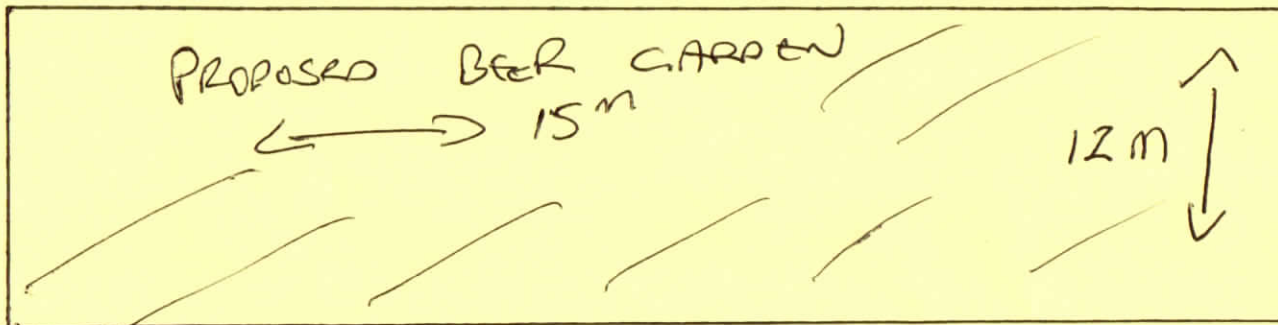 PROPOSED BEER GARDEN
15m
12m